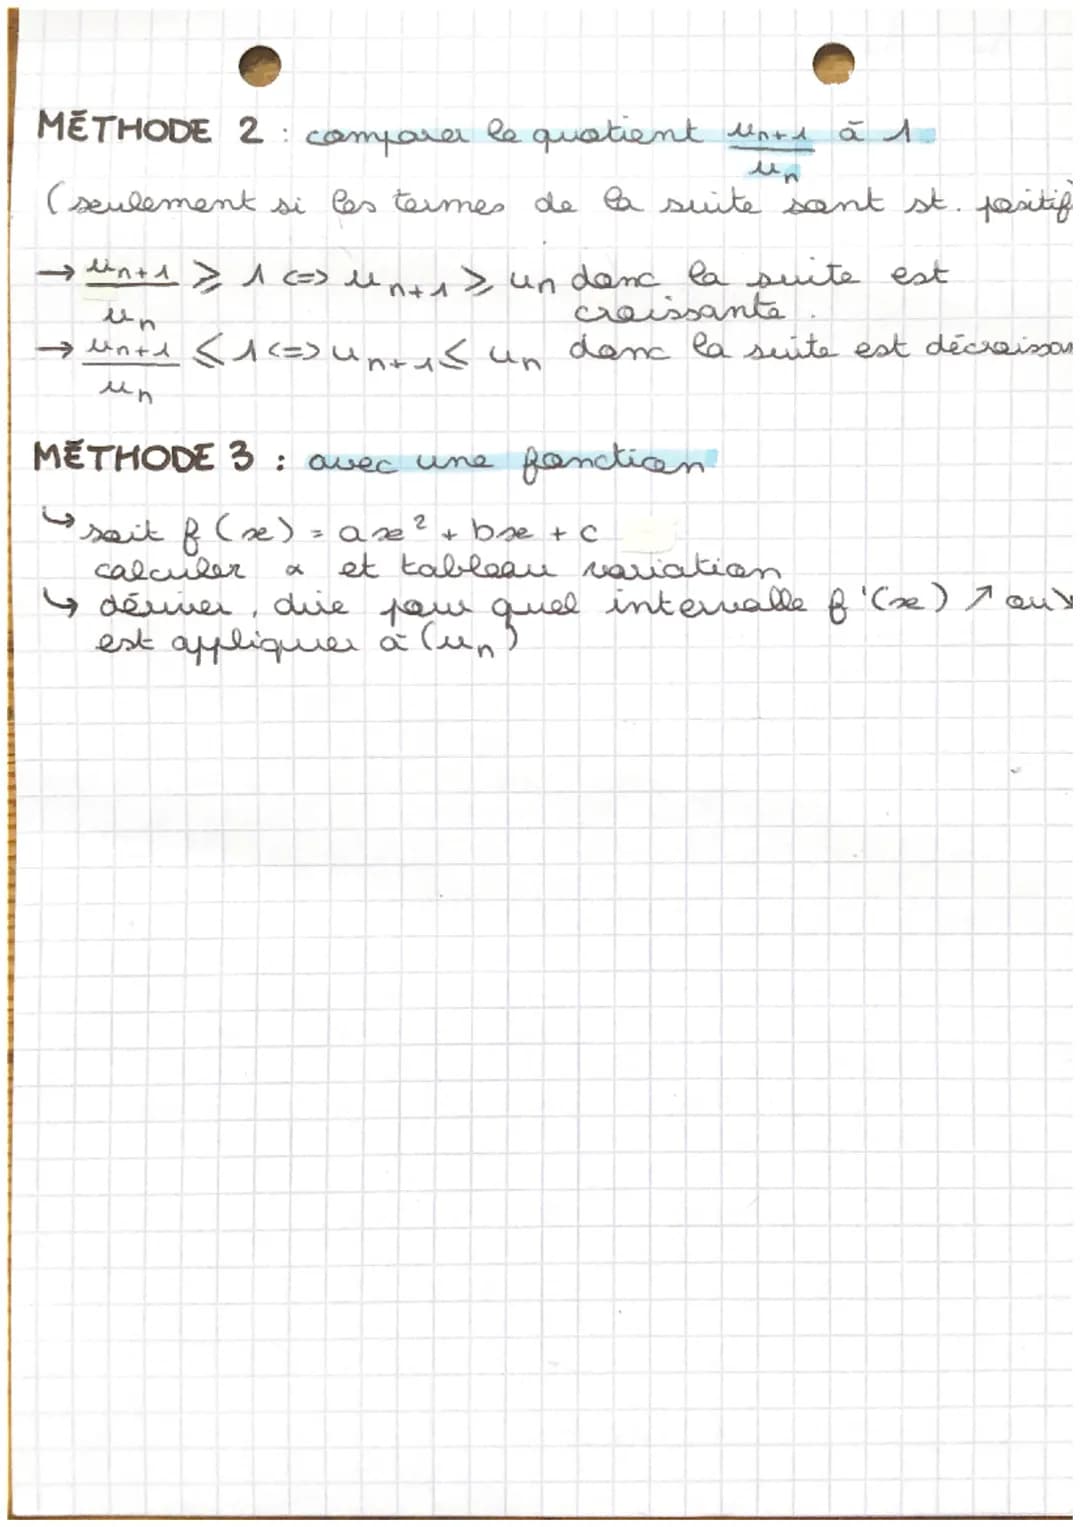 MÉTHODE 2 : comparer le quotient u_{n+1}/u_n à 1
(seulement si les termes de la suite sont st. positif
→ u_{n+1}/u_n ⩾ 1 <=> u_{n+1} ⩾ u_n donc la suite est
croissante.
→ u_{n+1}/u_n ⩽ 1 <=> u_{n+1} ⩽ u_n donc la suite est décroissan
MÉTHODE 3 : avec une fonction
↳ soit f(x) = ax² + bx + c
calculer α et tableau variation
↳ dériver, dire pour quel intervalle f'(x) ↗ ou ↘
est appliquer à (u_n)